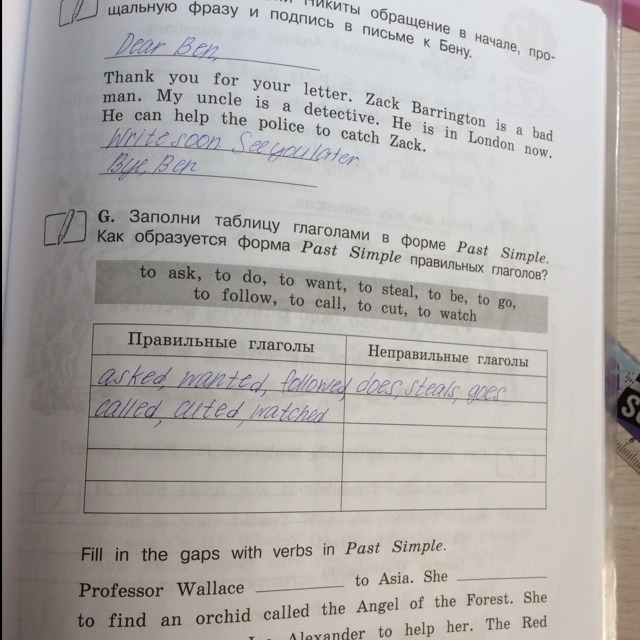 Никиты обращение в начале, про-
щальную фразу и подпись в письме к Бену.
Dear Ben,
Thank you for your letter. Zack Barrington is a bad
man. My uncle is a detective. He is in London now.
He can help the police to catch Zack.
Write soon See you later
Bye, Ben
G. Заполни таблицу глаголами в форме Past Simple.
Как образуется форма Past Simple правильных глаголов?
to ask, to do, to want, to steal, to be, to go,
to follow, to call, to cut, to watch
Правильные глаголы Неправильные глаголы
asked, wanted, followed, does, steals, goes
called, cuted, watched
Fill in the gaps with verbs in Past Simple.
Professor Wallace to Asia. She
to find an orchid called the Angel of the Forest. She
Alexander to help her. The Red